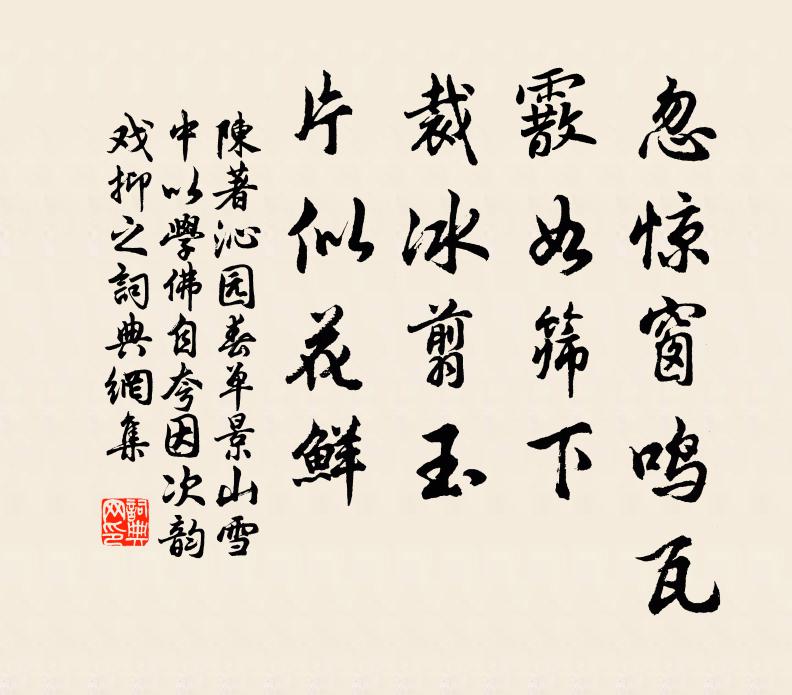 忽惊窗鸣瓦
霰如筛下
裁冰翦玉
片似花鮮
陳著沁园春单景山雪
中以學佛自夸因次韵
戏抑之詞典網集
詞典网印